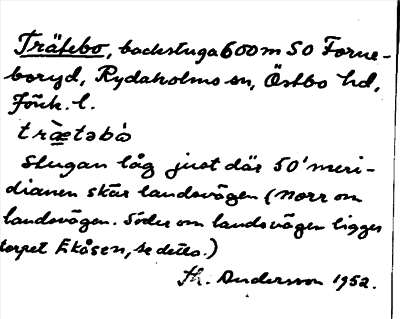 Träfebo, backstuga 600 m SO Forne-
boryd, Rydaholms sn, Östbo hd,
Jönk. l.
træ̀təbò
Stugan låg just där 50' meri-
dianen skär landsvägen (norr om
landsvägen. Söder om landsvägen ligger
torpet Ekåsen, se detta.)
Th. Andersson 1952.